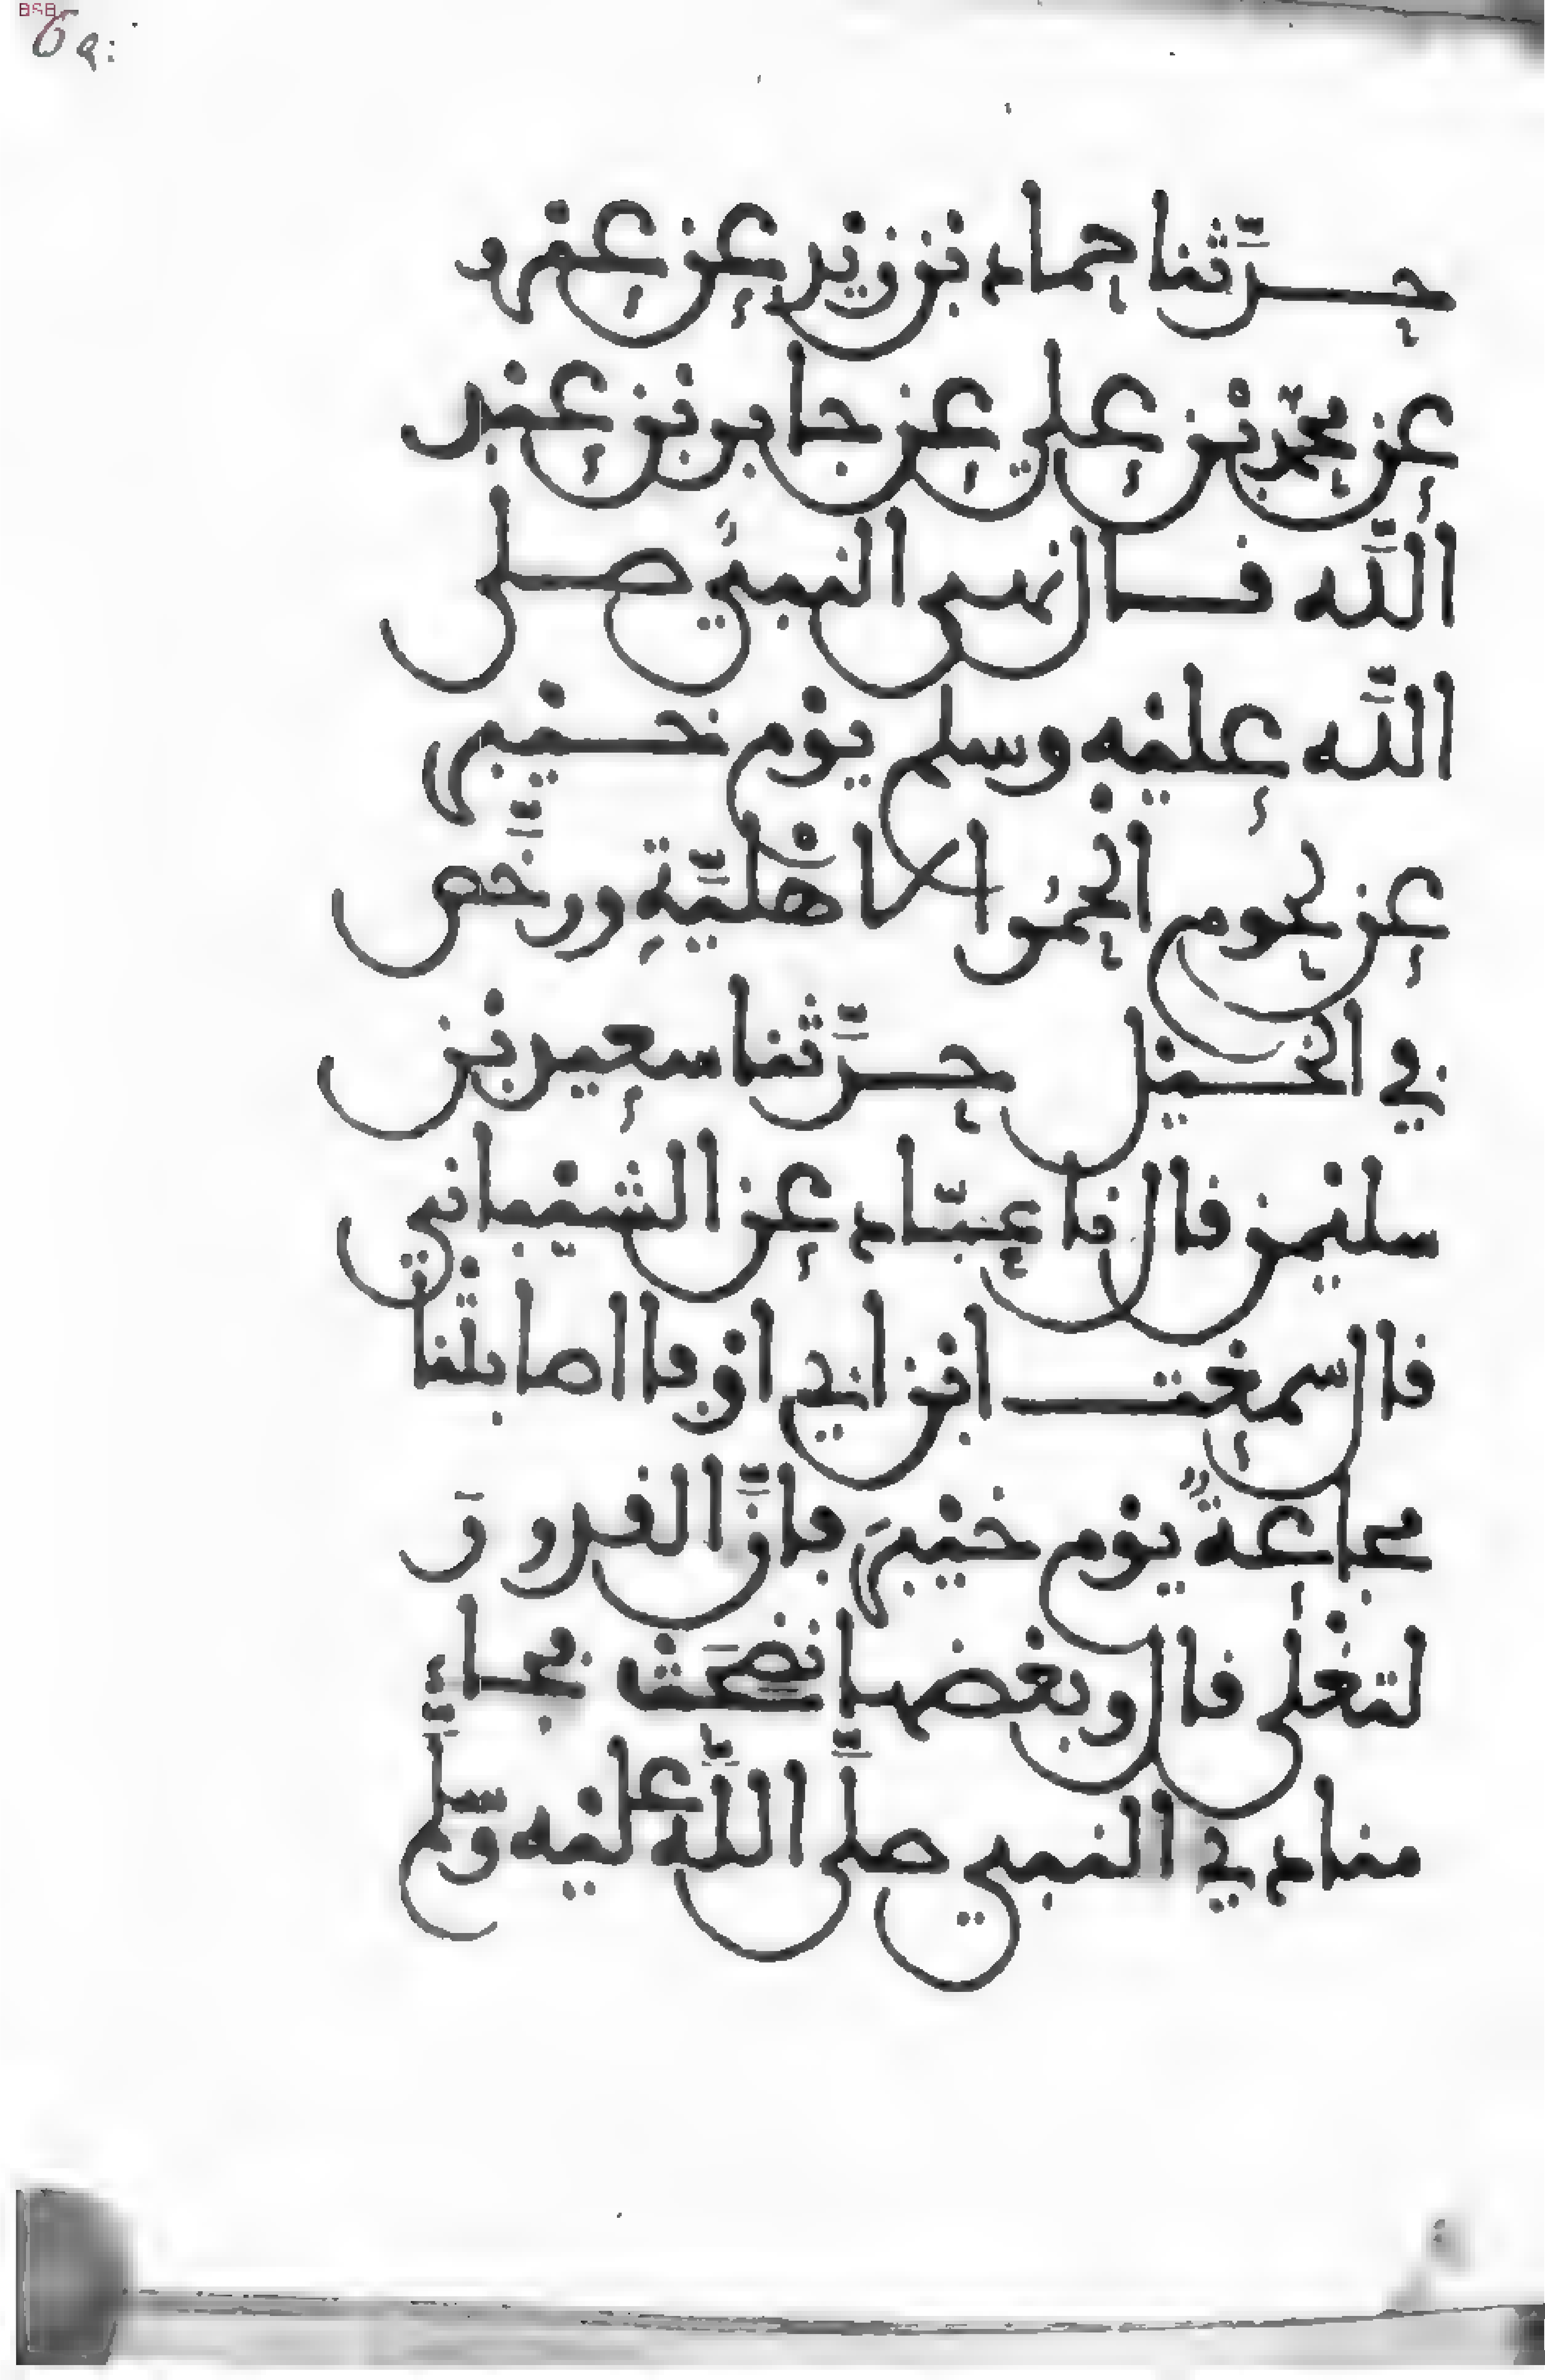 BSB
6 a:
حدّثنا حماد بن زيد عن عمرو
عن محمّد بن علي عن جابر بن عبد
اللّه قال نهى النبيّ صلى
اللّه عليه وسلم يوم خيبر
عن لحوم الحمر الاهليّةِ ورخّص
في الخيل حدّثنا سعيد بن
سليمن قال نا عبّاد عن الشيباني
قال سمعت ابن ابي اوفا اصابتنا
مجاعةٌ يوم خيبرَ فانّ القدورَ
لتغلى قال وبعضها نضَجَت فجاء
منادي النبي صلّى اللّه عليه وسلّم